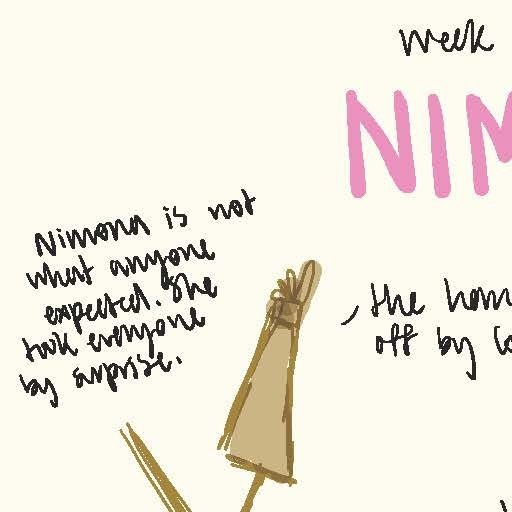 week
NIM
Nimona is not
what anyone
expected. She
took everyone
by surprise.
the hom
off by lo